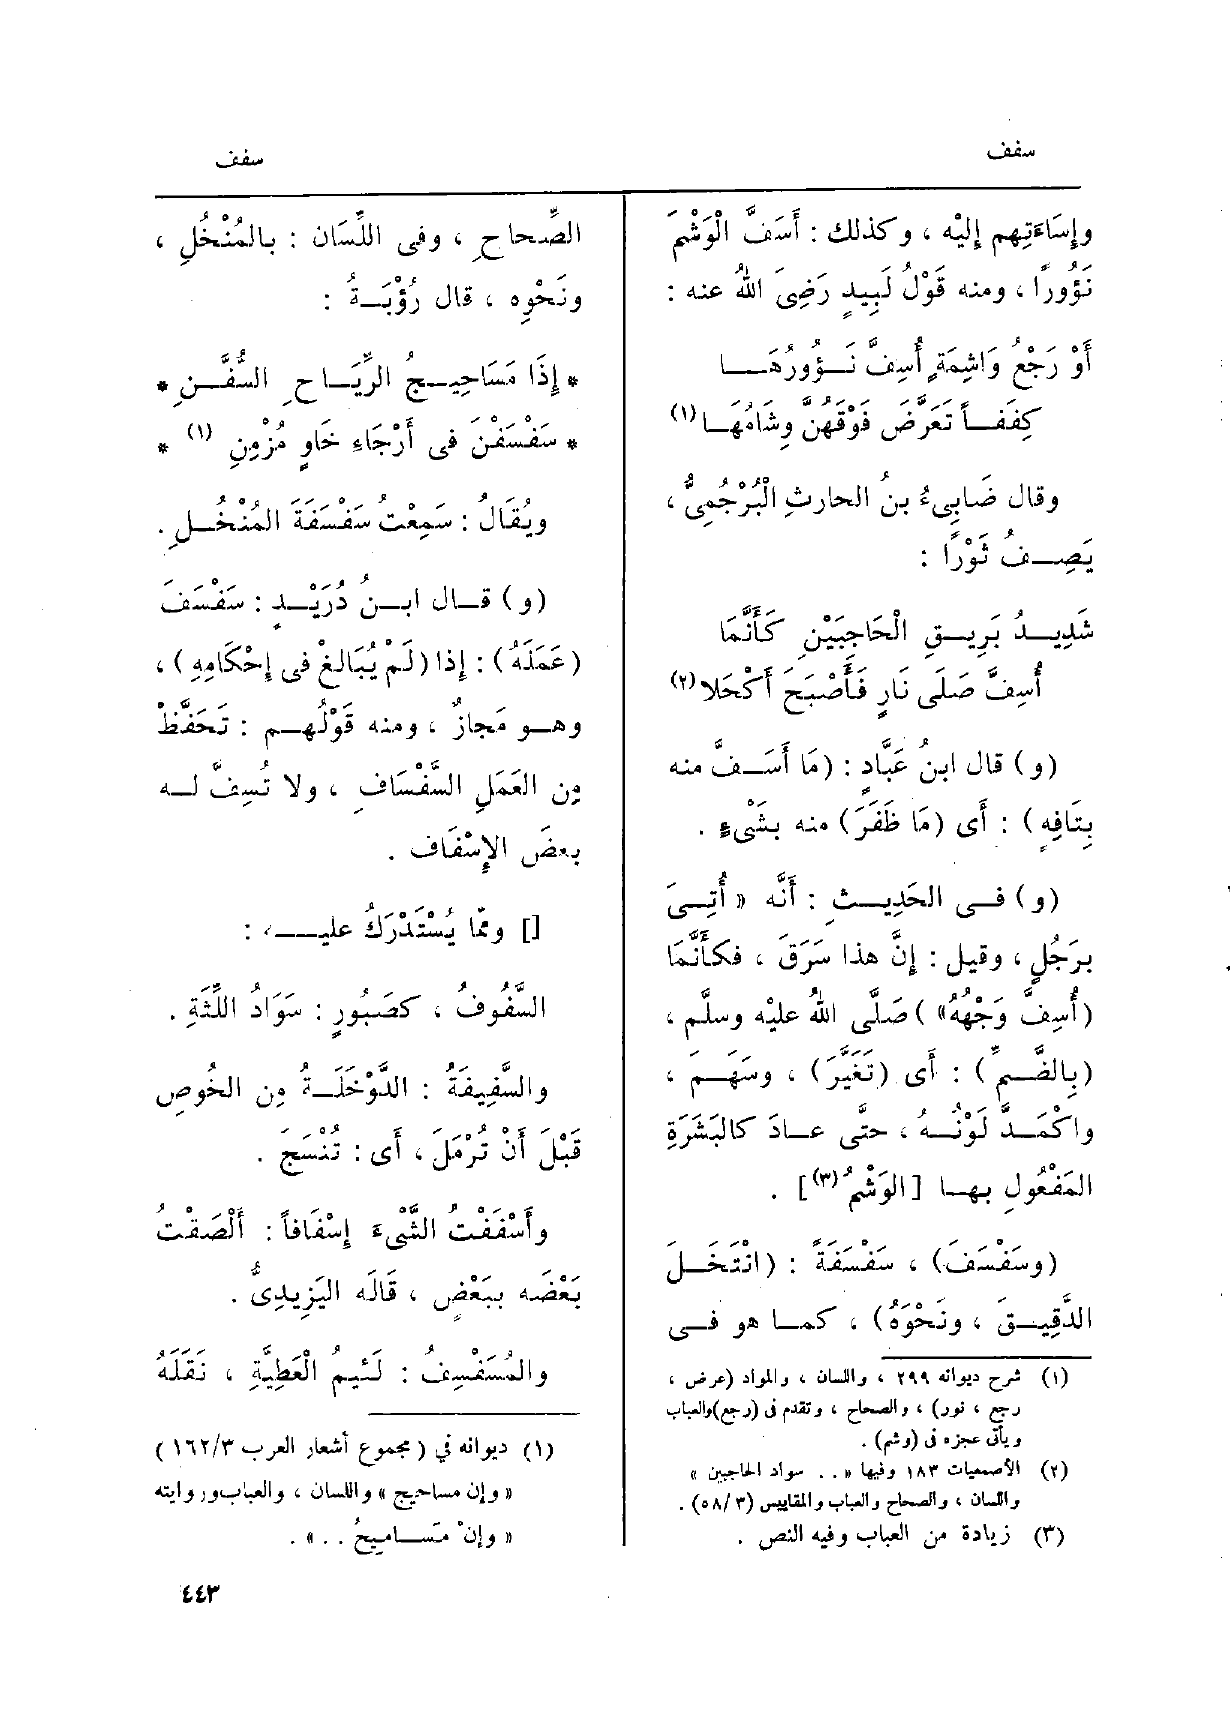 سفف
سفف
وإِسَاءَتِهم إِليْه ، وكذلك : أَسَفَّ الْوَشْمَ
نَؤُورًا ، ومنه قَوْلُ لَبِيدٍ رَضِىَ اللهُ عنه :
أَوْ رَجْعُ وَاشِمَةٍ أُسِفَّ نَـؤُورُهَـــا
كِفَفــاً تَعَرَّضَ فَوْقَهُنَّ وِشَامُهَـا(١)
وقال ضَابِىءُ بنُ الحارثِ الْبُرْجُمِىُّ ،
يَصِــفُ ثَوْرًا :
شَدِيــدُ بَرِيــقِ الْحَاجِبَيْنِ كَأَنَّمَا
أُسِفَّ صَلَى نَارٍ فَأَصْبَحَ أَكْحَلا(٢)
(و) قال ابنُ عَبَّادٍ : (مَا أَسَــفَّ منه
بِتَافِهٍ) : أَى (مَا ظَفَرَ) منه بشَىْءٍ .
(و) فــى الحَدِيــثِ : أَنَّه « أُتِــىَ
برَجُلٍ ، وقيل : إِنَّ هذا سَرَقَ ، فكأَنَّمَا
(أُسِفَّ وَجْهُهُ» ) صَلَّى اللهُ عليْه وسلَّم ،
(بِالضَّــمِّ) : أَى (تَغَيَّرَ) ، وسَهَــمَ ،
واكْمَــدَّ لَوْنُــهُ ، حتَّى عــادَ كالبَشَرَةِ
المَفْعُولِ بهـا [الوَشْمُ(٣)] .
(وسَفْسَفَ) ، سَفْسَفَةً : (انْتَخَــلَ
الدَّقِيــقَ ، ونَحْوَهُ) ، كمــا هو فــى
(١) شرح ديوانه ٢٩٩ ، واللسان ، والمواد (عرض ،
رجع ، نور) ، والصحاح ، وتقدم فى (رجع)والعباب
ويأتى عجزه فى (وشم) .
(٢) الأصمعيات ١٨٣ وفيها « . . سواد الحاجبين »
واللسان ، والصحاح والعباب والمقاييس (٣/ ٥٨) .
(٣) زيادة من العباب وفيه النص .
الصِّحاحِ ، وفى اللِّسَان : بالمُنْخُلِ ،
ونَحْوِه ، قال رُؤْبَــةُ :
* إِذَا مَسَاحِيــجُ الرِّيَــاحِ السُّفَّــنِ *
* سَفْسَفْنَ فى أَرْجَاءِ خَاوٍ مُزْمِنِ (١) *
ويُقَالُ : سَمِعْتُ سَفْسَفَةَ المُنْخُــلِ .
(و) قــال ابــنُ دُرَيْــدٍ : سَفْسَفَ
(عَمَلَهُ) : إِذا (لَمْ يُبَالِغْ فى إِحْكَامِهِ) ،
وهــو مَجازٌ ، ومنه قَوْلُهــم : تَحَفَّظْ
مِن العَمَلِ السَّفْسَافِ ، ولا تُسِفَّ لــه
بعضَ الإِسْفَاف .
[] وممّا يُسْتَدْرَكُ عليــــه :
السَّفُوفُ ، كصَبُورٍ : سَوَادُ اللِّثَةِ .
والسَّفِيفَةُ : الدَّوْخَلَــةُ مِن الخُوصِ
قَبْلَ أَنْ تُرْمَلَ ، أَى : تُنْسَجَ .
وأَسْفَفْتُ الشَّىْءَ إِسْفَافاً : أَلْصَقْتُ
بَعْضَه ببَعْضٍ ، قَالَه اليَزِيدِىُّ .
والمُسَفْسِفُ : لَئِيمُ الْعَطِيَّةِ ، نَقَلَهُ
(١) ديوانه في ( مجموع أشعار العرب ٣/ ١٦٢ )
« وإن مساحيج » واللسان ، والعباب وروايته
« وإنْ مَسَــامِيحُ . . » .
٤٤٣